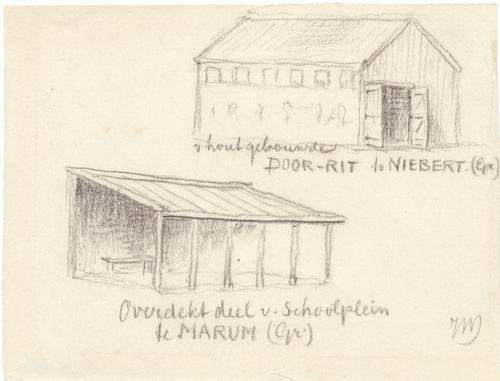 v hout gebouwde
DOOR-RIT te NIEBERT. (Gr.)
Overdekt deel v. Schoolplein
te MARUM (Gr.)